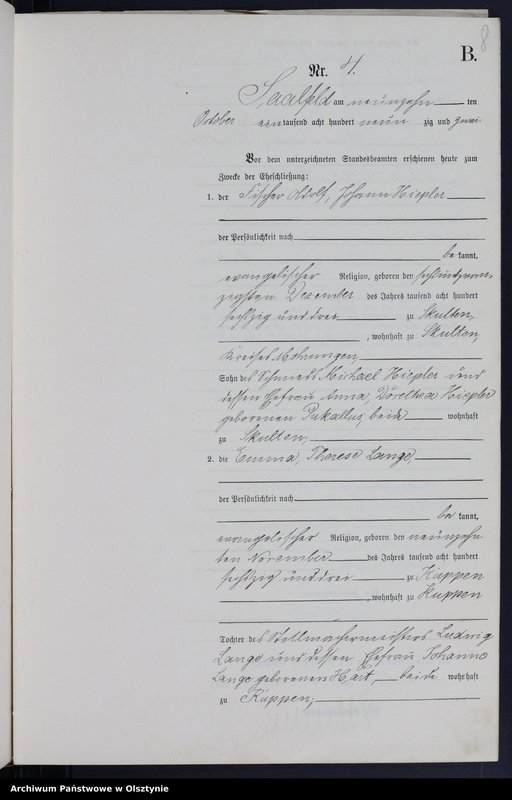 B.
8
Nr. 4.
Saalfeld am neunzehn ten
October ein tausend acht hundert neun zig und zwei
Vor dem unterzeichneten Standesbeamten erschienen heute zum
Zwecke der Eheschließung:
1. der Fischer Adolf, Johann Hiepler
der Persönlichkeit nach
be kannt,
evangelischer Religion, geboren den sechsundzwan-
zigsten Dezember des Jahres tausend acht hundert
sechszig und drei zu Skulten,
, wohnhaft zu Skulten,
Kreises Mohrungen,
Sohn des Schmieds Michael Hiepler und
dessen Ehefrau Anna, Dorethea Hiepler
geborenen Pukallus, beide wohnhaft
zu Skulten,
2. die Emma, Therese Lange,
der Persönlichkeit nach
be kannt,
evangelischer Religion, geboren den neunzehn-
ten November des Jahres tausend acht hundert
sechszig und drei zu Kuppen
, wohnhaft zu Kuppen
Tochter des Stellmachermeisters Ludwig
Lange und dessen Ehefrau Johanne
Lange geborenen Hart, beide wohnhaft
zu Kuppen,
Archiwum Państwowe w Olsztynie